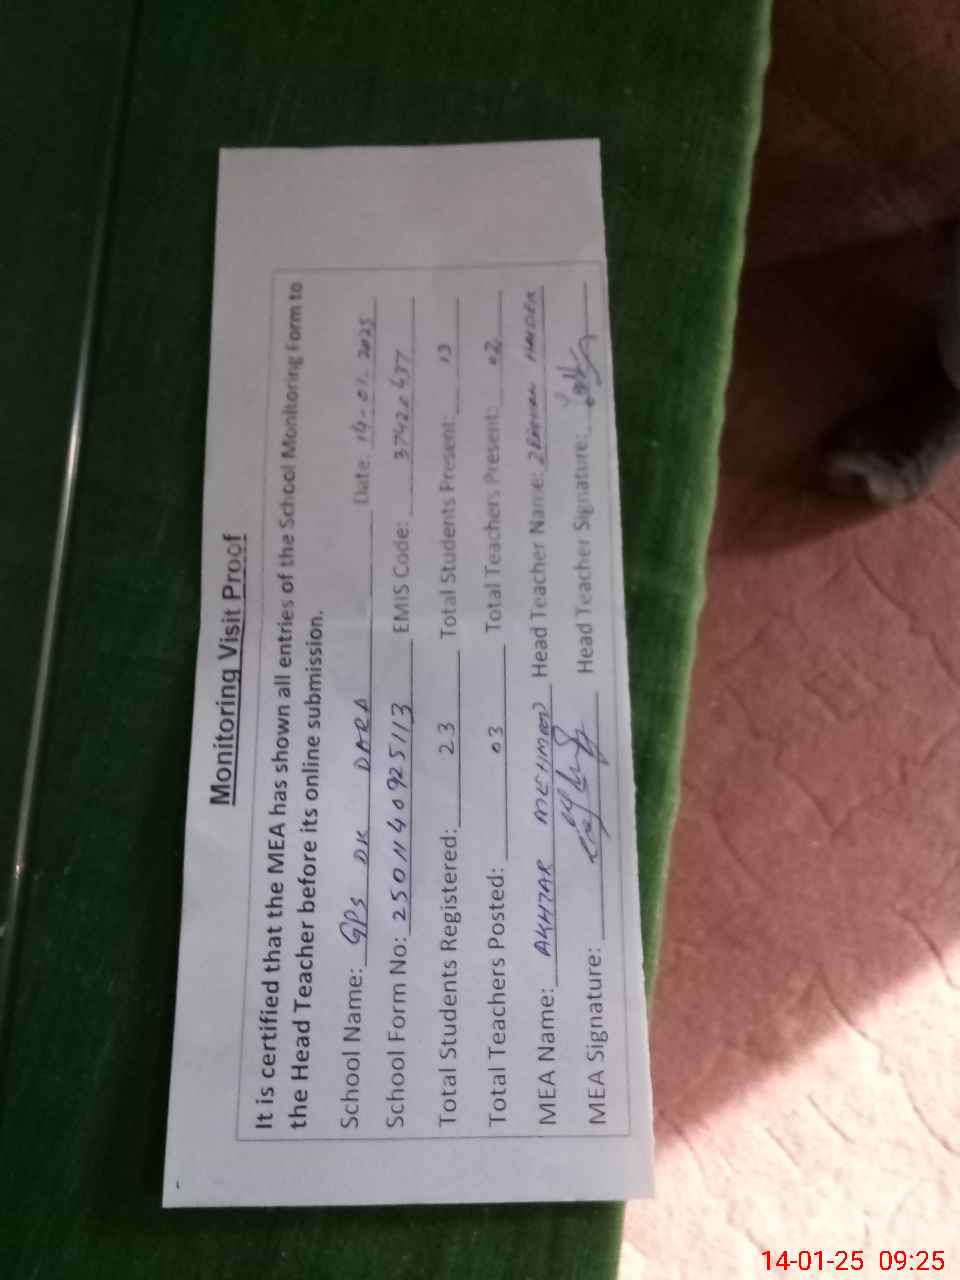 Monitoring Visit Proof
It is certified that the MEA has shown all entries of the School Monitoring Form to
the Head Teacher before its online submission.
School Name: GPS DK DARA Date: 14-01-2025
School Form No: 2501140925113 EMIS Code: 37420437
Total Students Registered: 23 Total Students Present: 13
Total Teachers Posted: 03 Total Teachers Present: 02
MEA Name: AKHTAR MEHMOOD Head Teacher Name: HAIDER
MEA Signature: Head Teacher Signature:
14-01-25 09:25